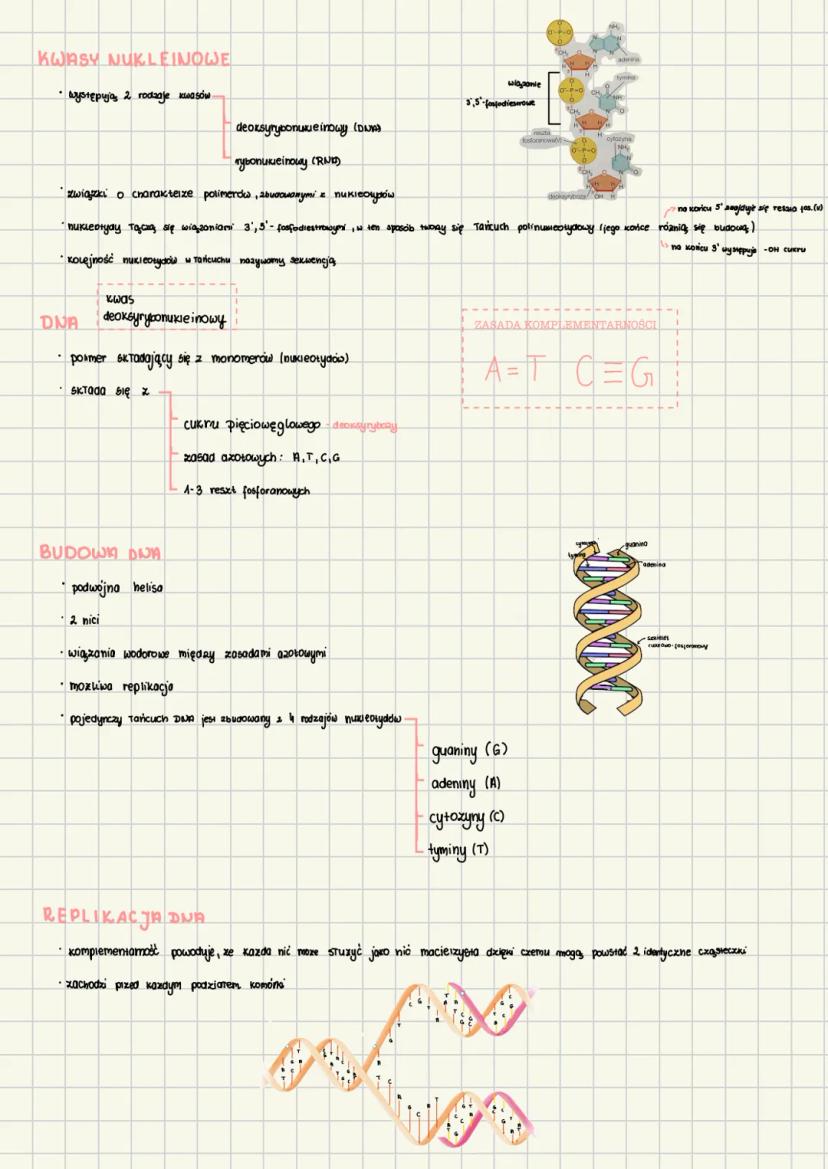 KWASY NUKLEINOWE
· występują 2 rodzaje kwasów
deoksyrybonukleinowy (DNA)
rybonukleinowy (RNA)
· związki o charakterze polimerów, zbudowanymi z nukleotydów
· nukleotydy łączą się wiązaniami 3',5'-fosfodiestrowymi, w ten sposób tworzy się łańcuch polinukleotydowy (jego końce różnią się budową)
na końcu 5' znajduje się reszta fos.(V)
na końcu 3' występuje -OH cukru
· kolejność nukleotydów w łańcuchu nazywamy sekwencją
wiązanie
3',5'-fosfodiestrowe
adenina
tymina
reszta
fosforanowa(V)
cytozyna
deoksyryboza
DNA
kwas
deoksyrybonukleinowy
· polimer składający się z monomerów (nukleotydów)
· składa się z
cukru pięciowęglowego - deoksyrybozy
zasad azotowych: A,T,C,G
1-3 reszt fosforanowych
ZASADA KOMPLEMENTARNOŚCI
A=T C≡G
BUDOWA DNA
· podwójna helisa
· 2 nici
· wiązania wodorowe między zasadami azotowymi
· możliwa replikacja
· pojedynczy łańcuch DNA jest zbudowany z 4 rodzajów nukleotydów
guaniny (G)
adeniny (A)
cytozyny (C)
tyminy (T)
cytozyna
guanina
tymina
adenina
szkielet
cukrowo-fosforanowy
REPLIKACJA DNA
· komplementarność powoduje, że każda nić może służyć jako nić macierzysta dzięki czemu mogą powstać 2 identyczne cząsteczki
· zachodzi przed każdym podziałem komórki